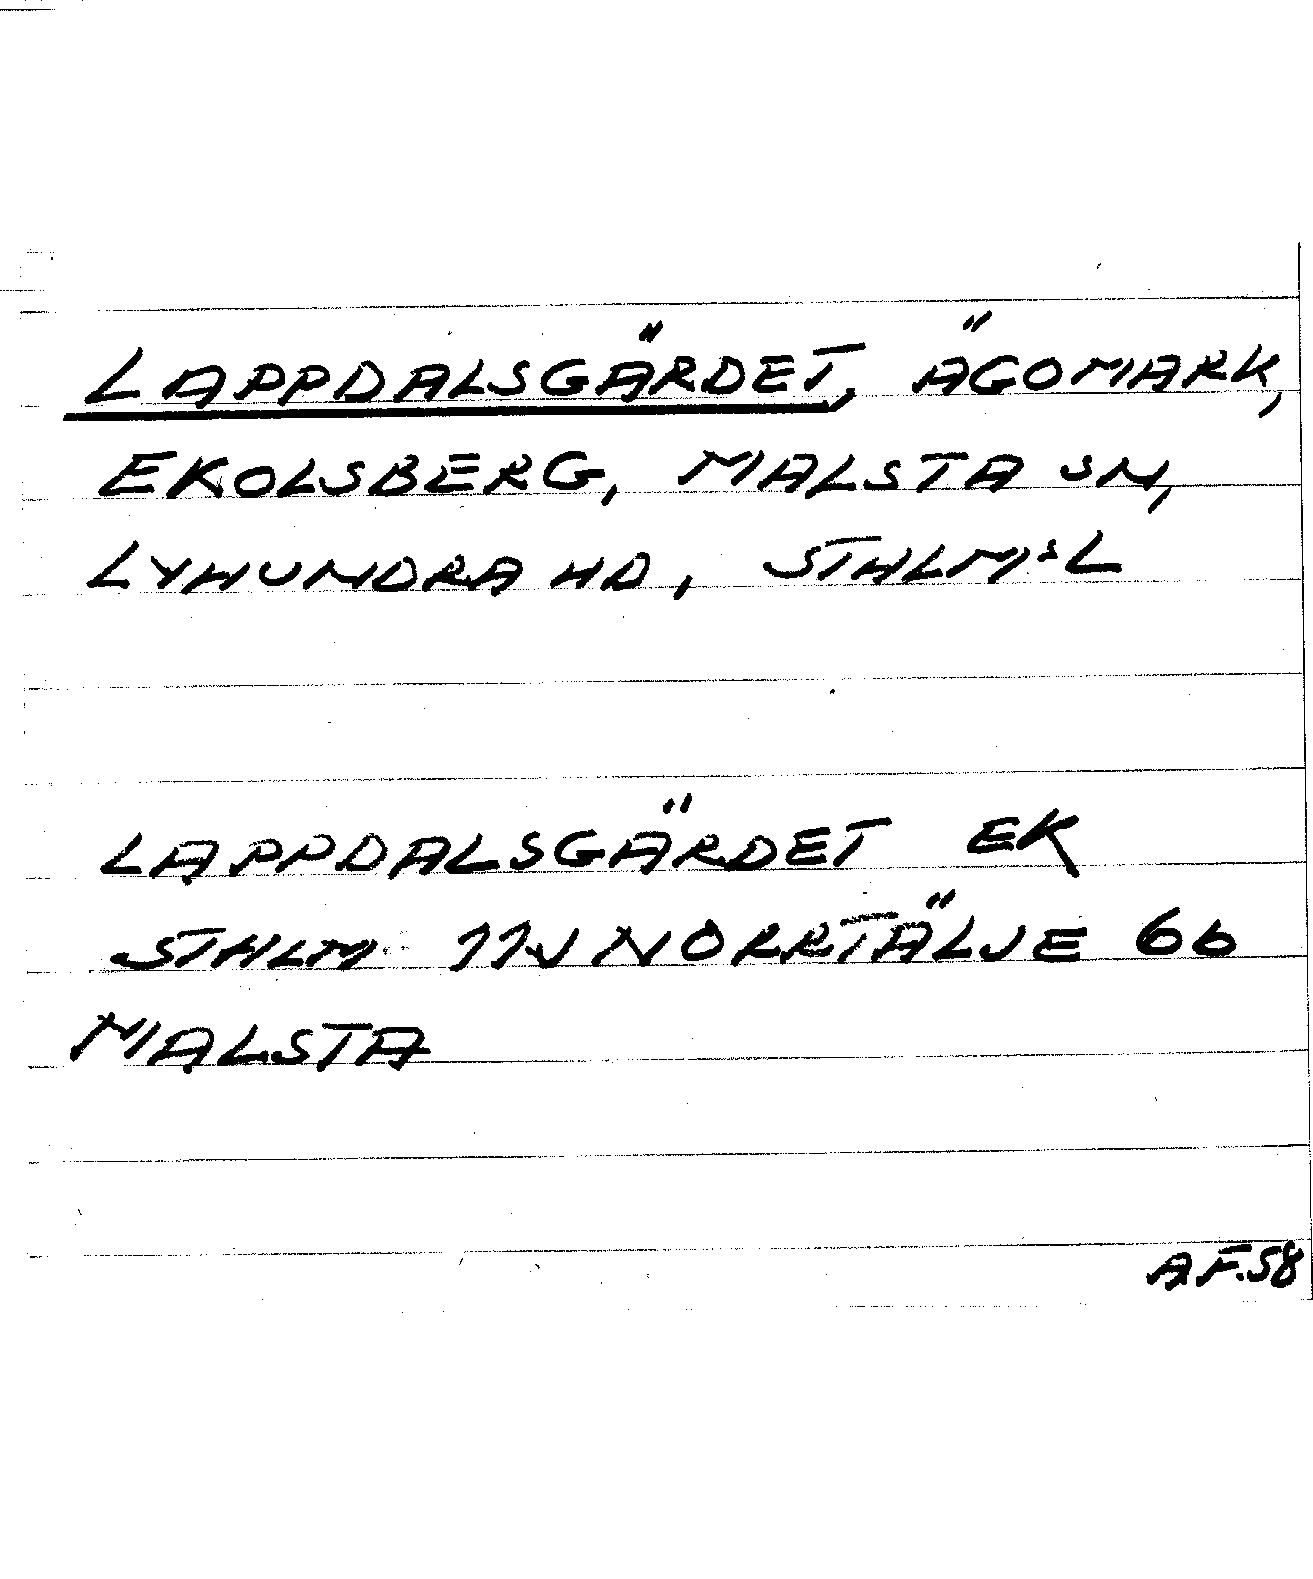 LAPPDALSGÄRDET, ÄGOMARK,
EKOLSBERG, MALSTA SN,
LYHUNDRA HD, STHLM:S L
LAPPDALSGÄRDET EK
STHLM 11J NORRTÄLJE 6b
MALSTA
A F.58